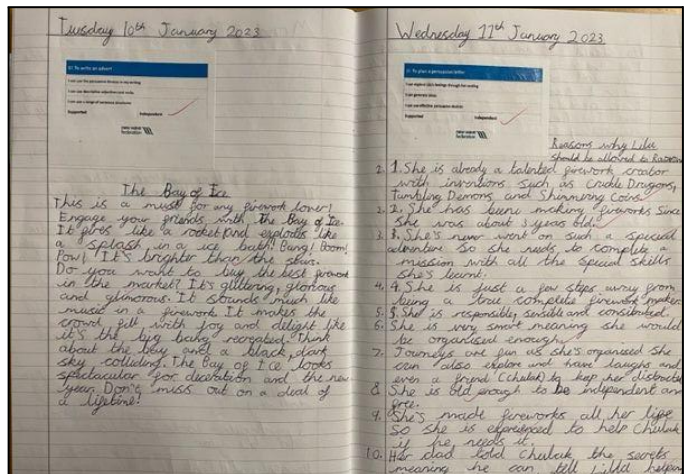 Tuesday 10th January 2023
LI: To write an advert
I can use descriptive adjectives and verbs
I can use a range of sentence structures
Supported Independent
new wave
federation
The Bay of Ice
This is a must for any firework lover!
Engage your friends with the Bay of Ice.
It fires like a rocket and explodes like
a splash in a ice bath! Bang! Boom!
Pow! It's brighter than the stars.
Do you want to buy the best firework
in the market? It's glittering, glorious
and glimorous. It stounds much like
music in a firework. It makes the
crowd fill with joy and delight like
it's the big bang recreated. Think
about the bay and a black, dark
sky colliding. The Bay of Ice looks
spectacular for decoration and the new
year. Don't miss out on a deal of
a lifetime!
Wednesday 11th January 2023
LI: To plan a persuasive letter
I can generate ideas
I can use effective persuasive devices
Supported Independent
new wave
federation
Reasons why Lila
should be allowed to
1. 1. She is already a talented firework creator
with inventions such as Crackle Dragons,
Tumbling Demons and Shimmering Coins.
2. 2. She has been making fireworks since
she was about 3 years old.
3. 3. She's never went on such a special
adventure so she needs to complete a
mission with all the special skills
she's learnt.
4. 4. She is just a few steps away from
being a true complete firework maker.
5. 5. She is responsible, sensible and
6. She is very smart meaning she would
be organised enough.
7. Journeys are fun as she's organised she
can also explore and have laughs and
even a friend (Chulak) to kep her distracted
8. She is old enough to be independent and
free.
9. She's made fireworks all her life
so she is experienced to help Chulak
if he needs it.
10. Her dad told Chulak the secrets
meaning he can tell Lila